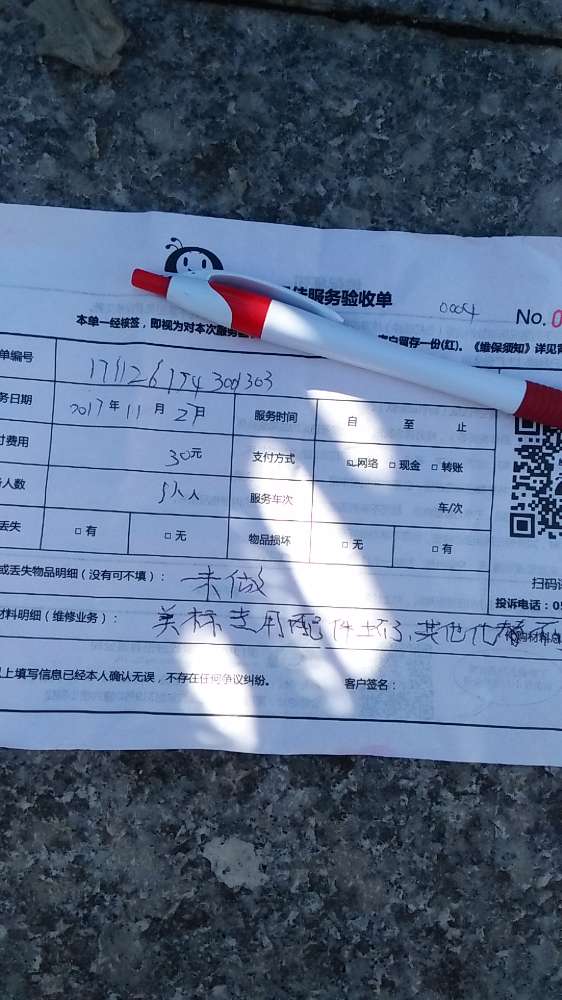 佳服务验收单 0004 No. 0
本单一经核签，即视为对本次服务 客户留存一份(红)。《维保须知》详见背
单编号 171126194300303
务日期 2017年 11月 2 日 服务时间 自 至 止
付费用 30元 支付方式 ☑网络 □现金 □转账
人数 人 服务车次 车/次
丢失 □有 □无 物品损坏 □无 □有
扫码
或丢失物品明细（没有可不填）： 未做
投诉电话：05
材料明细（维修业务）： 美标专用配件坏了，其他代替不
以上填写信息已经本人确认无误，不存在任何争议纠纷。 客户签名：